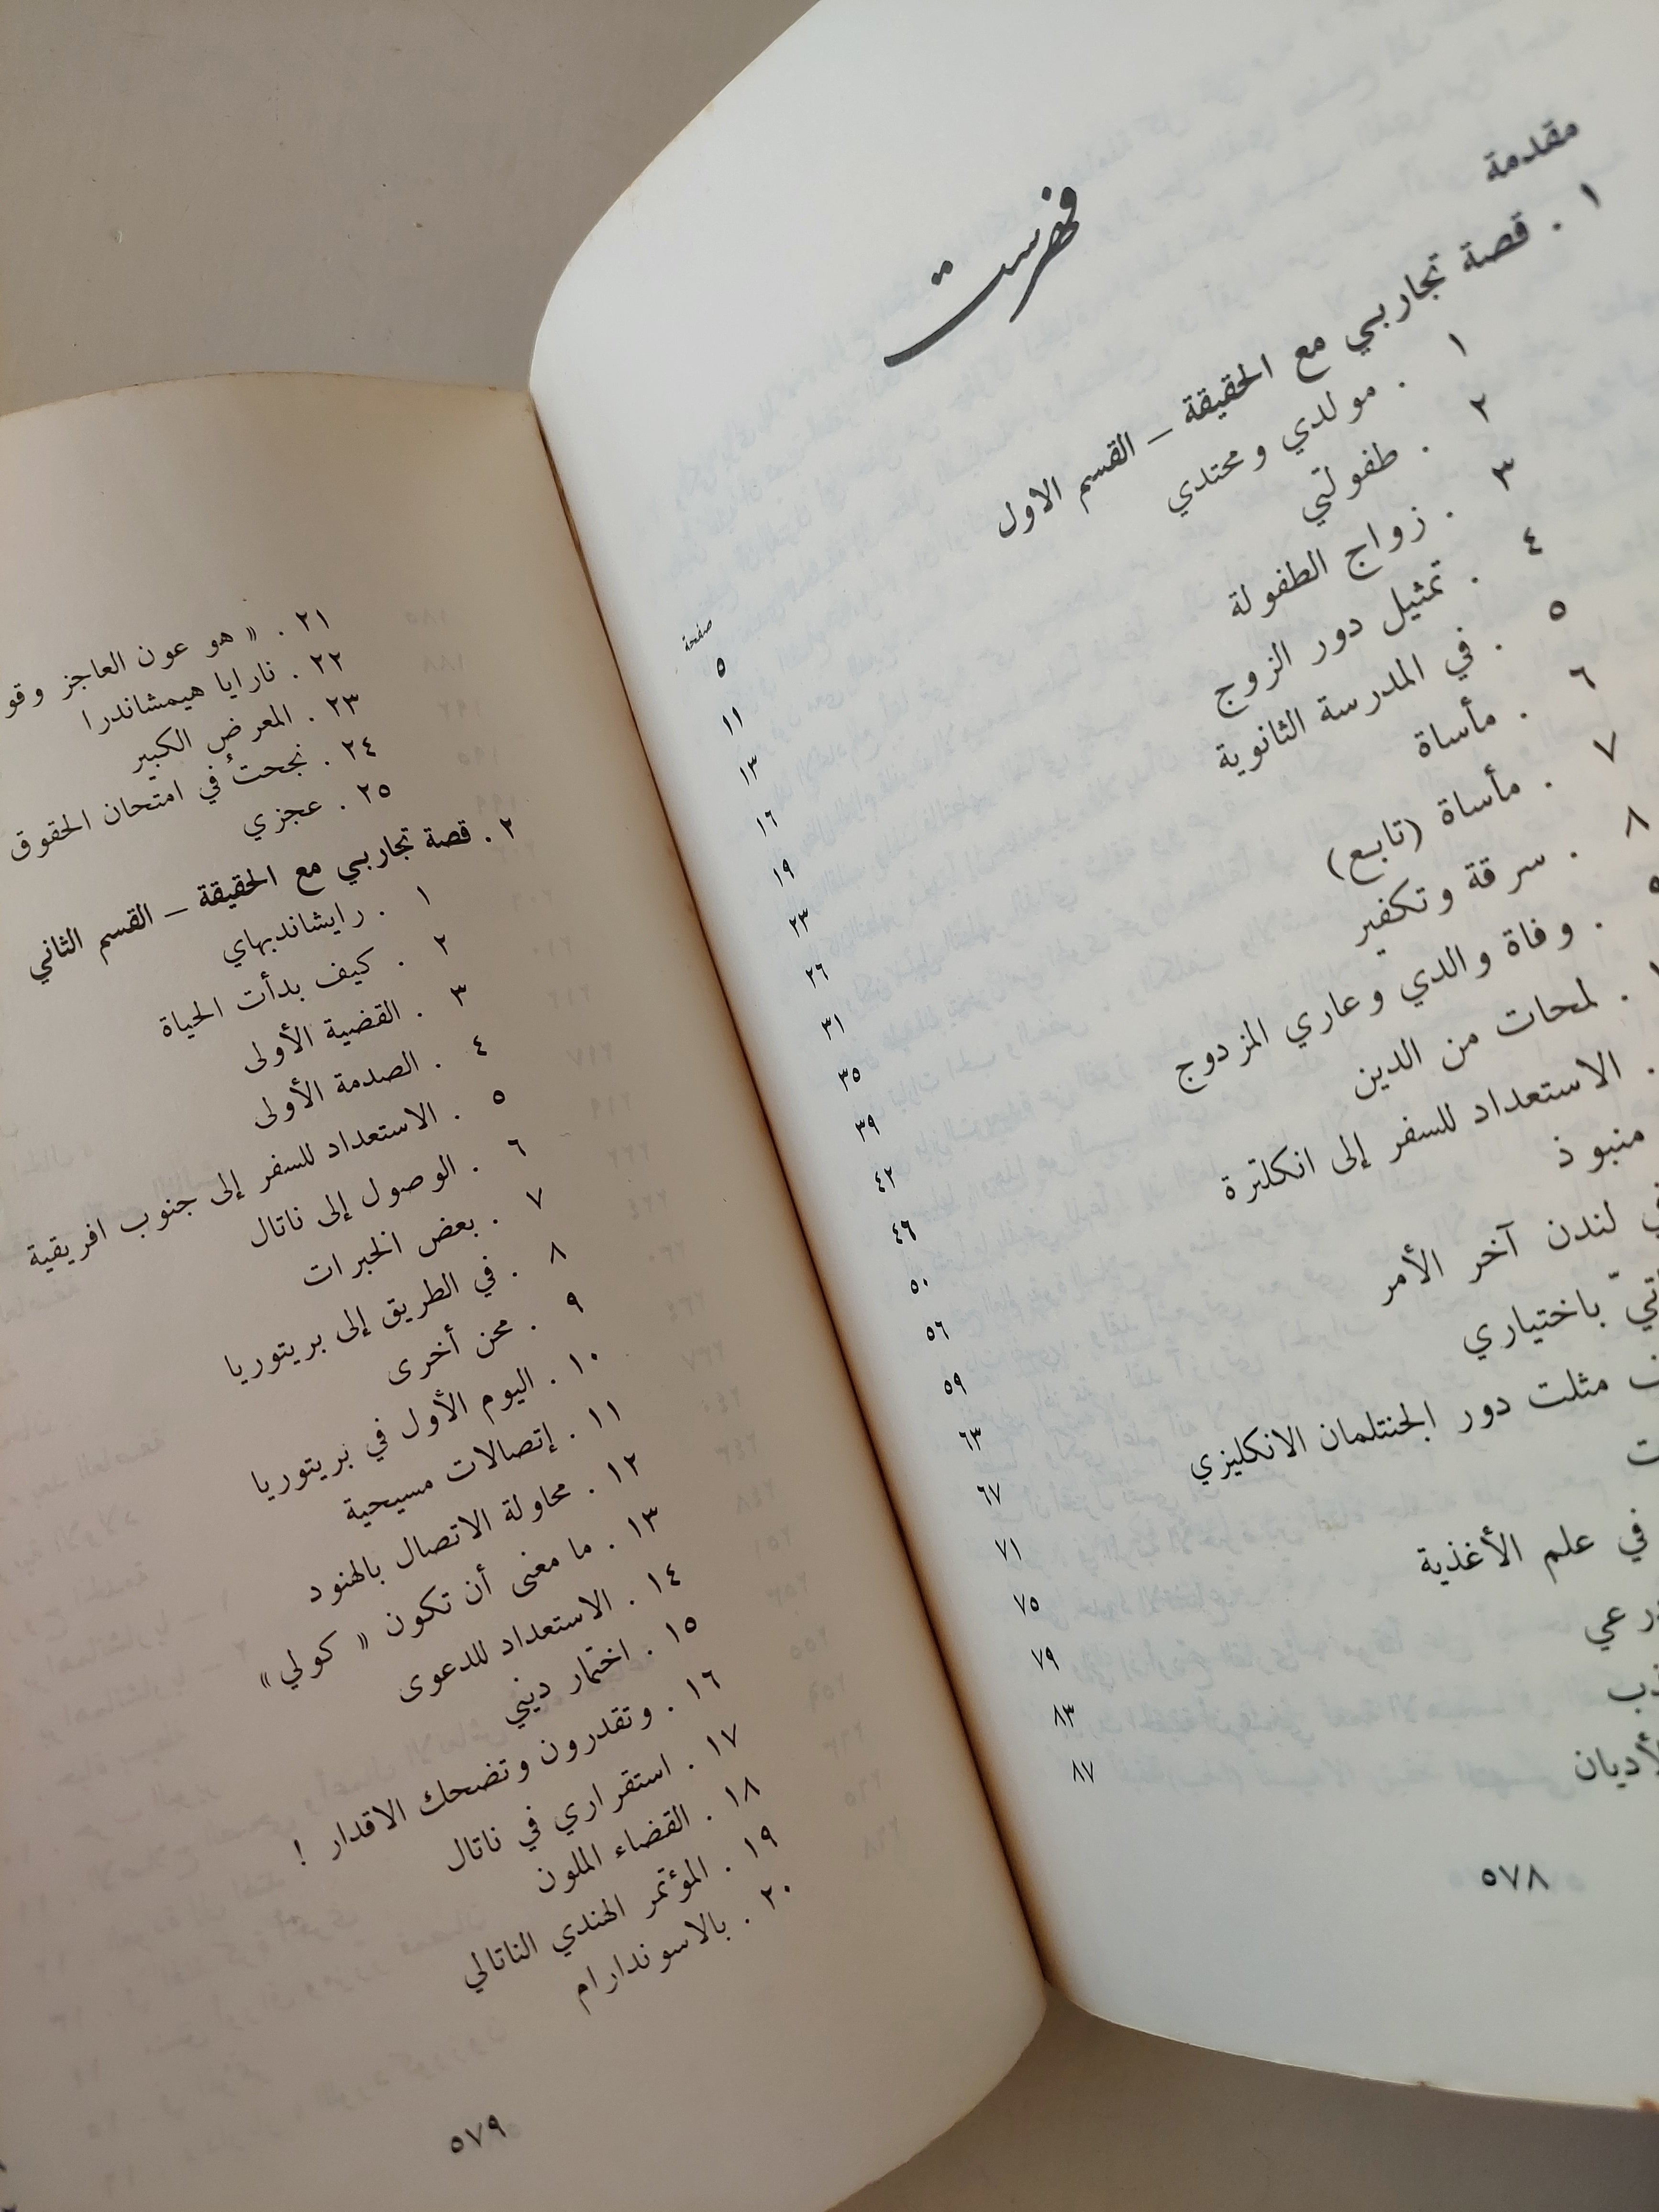 فهرست
صفحة
مقدمة ٥
١ . قصة تجاربي مع الحقيقة – القسم الاول ١١
١ . مولدي ومحتدي ١٣
٢ . طفولتي ١٦
٣ . زواج الطفولة ١٩
٤ . تمثيل دور الزوج ٢٣
٥ . في المدرسة الثانوية ٢٦
٦ . مأساة ٣١
٧ . مأساة (تابع) ٣٥
٨ . سرقة وتكفير ٣٩
. وفاة والدي وعاري المزدوج ٤٢
. لمحات من الدين ٤٦
. الاستعداد للسفر إلى انكلترة ٥٠
منبوذ ٥٦
لندن آخر الأمر ٥٩
باختياري ٦٣
مثلت دور الجنتلمان الانكليزي ٦٧
٧١
في علم الأغذية ٧٥
٧٩
٨٣
٨٧
٥٧٨
٢١ . « هو عون العاجز
٢٢ . نارايا هيمشاندرا
٢٣ . المعرض الكبير
٢٤ . نجحتُ في امتحان الحقوق
٢٥ . عجزي
٢ . قصة تجاربي مع الحقيقة – القسم الثاني
١ . رايشاندبهاي
٢ . كيف بدأت الحياة
٣ . القضية الأولى
٤ . الصدمة الأولى
٥ . الاستعداد للسفر إلى جنوب افريقية
٦ . الوصول إلى ناتال
٧ . بعض الخبرات
٨ . في الطريق إلى بريتوريا
٩ . محن أخرى
١٠ . اليوم الأول في بريتوريا
١١ . إتصالات مسيحية
١٢ . محاولة الاتصال بالهنود
١٣ . ما معنى أن تكون « كولي »
١٤ . الاستعداد للدعوى
١٥ . اختمار ديني
١٦ . وتقدرون وتضحك الاقدار !
١٧ . استقراري في ناتال
١٨ . القضاء الملون
١٩ . المؤتمر الهندي الناتالي
٢٠ . بالاسوندارام
٥٧٩